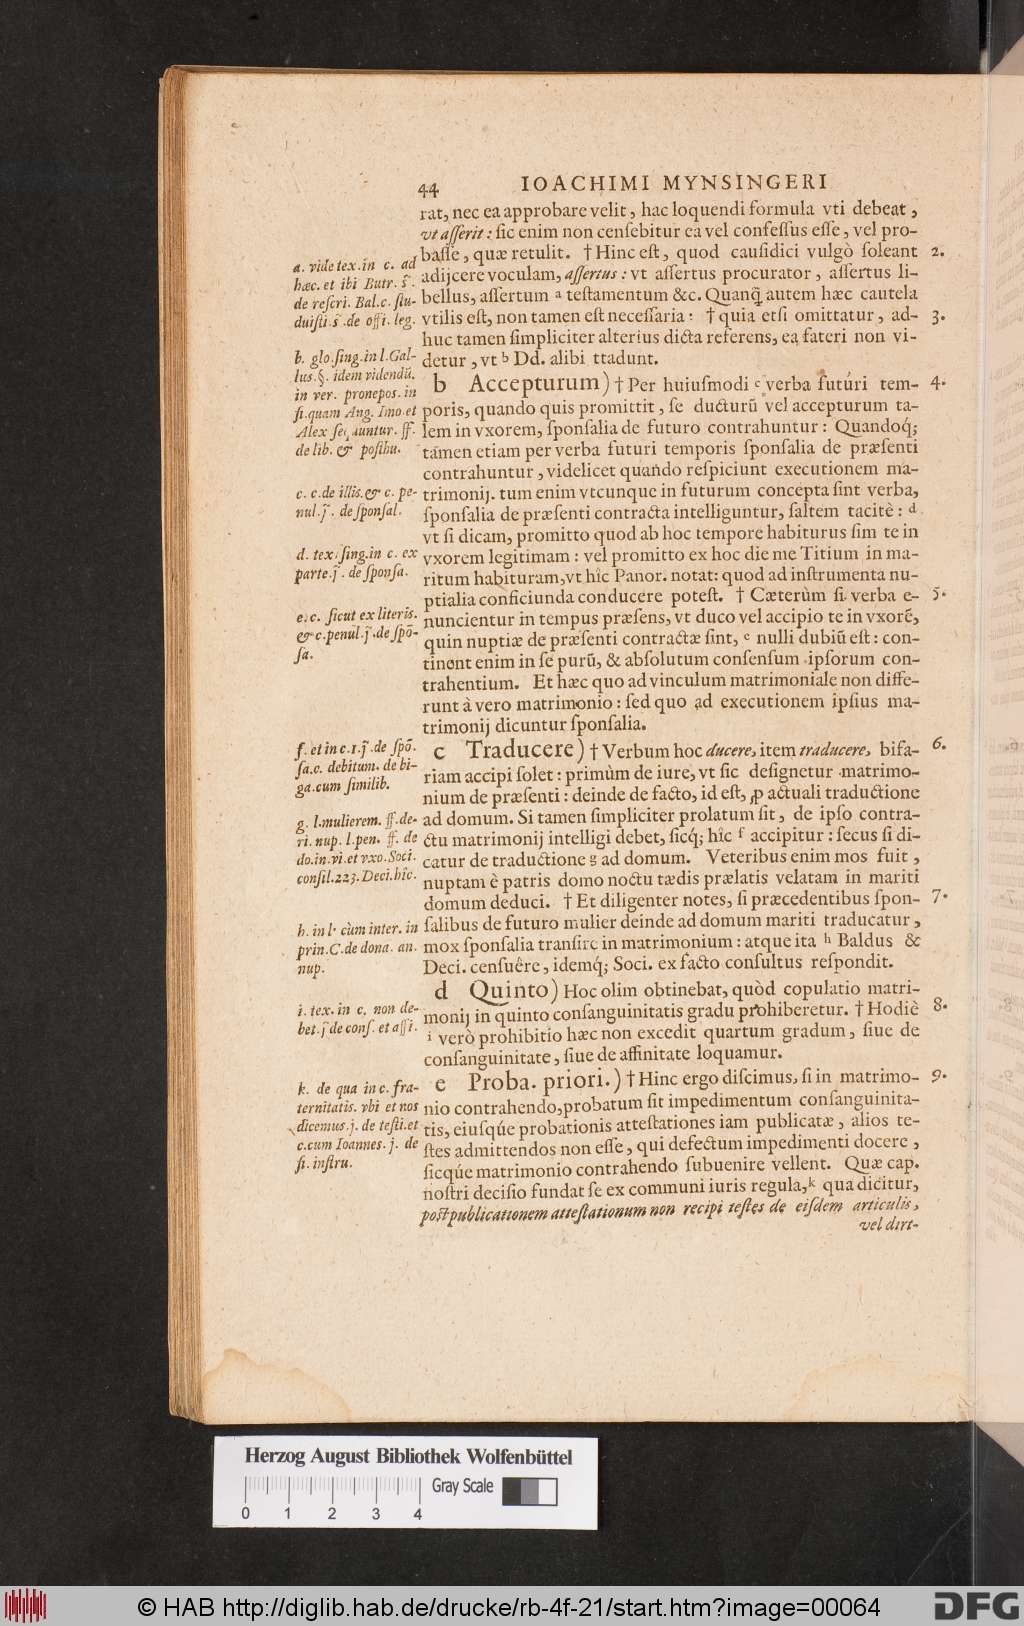 44 IOACHIMI MYNSINGERI
rat, nec ea approbare velit, hac loquendi formula vti debeat,
vt asserit: sic enim non censebitur ea vel confessus esse, vel pro-
basse, quæ retulit. † Hinc est, quod causidici vulgò soleant 2.
adijcere voculam, assertus: vt assertus procurator, assertus li-
bellus, assertum a testamentum &c. Quanq̃ autem hæc cautela
vtilis est, non tamen est necessaria: † quia etsi omittatur, ad- 3.
huc tamen simpliciter alterius dicta referens, ea fateri non vi-
detur, vt b Dd. alibi ttadunt.
b Accepturum) † Per huiusmodi c verba futuri tem- 4.
poris, quando quis promittit, se ducturũ vel accepturum ta-
lem in vxorem, sponsalia de futuro contrahuntur: Quandoq́;
tamen etiam per verba futuri temporis sponsalia de præsenti
contrahuntur, videlicet quando respiciunt executionem ma-
trimonij. tum enim vtcunque in futurum concepta sint verba,
sponsalia de præsenti contracta intelliguntur, saltem tacitè: d
vt si dicam, promitto quod ab hoc tempore habiturus sim te in
vxorem legitimam: vel promitto ex hoc die me Titium in ma-
ritum habituram, vt hîc Panor. notat: quod ad instrumenta nu-
ptialia conficiunda conducere potest. † Cæterùm si verba e- 5.
nuncientur in tempus præsens, vt duco vel accipio te in vxorẽ,
quin nuptiæ de præsenti contractæ sint, e nulli dubiũ est: con-
tinent enim in se purũ, & absolutum consensum ipsorum con-
trahentium. Et hæc quo ad vinculum matrimoniale non diffe-
runt à vero matrimonio: sed quo ad executionem ipsius ma-
trimonij dicuntur sponsalia.
c Traducere) † Verbum hoc ducere, item traducere, bifa- 6.
riam accipi solet: primùm de iure, vt sic designetur matrimo-
nium de præsenti: deinde de facto, id est, ꝓ actuali traductione
ad domum. Si tamen simpliciter prolatum sit, de ipso contra-
ctu matrimonij intelligi debet, sicq́; hîc f accipitur: secus si di-
catur de traductione g ad domum. Veteribus enim mos fuit,
nuptam è patris domo noctu tædis prælatis velatam in mariti
domum deduci. † Et diligenter notes, si præcedentibus spon- 7.
salibus de futuro mulier deinde ad domum mariti traducatur,
mox sponsalia transire in matrimonium: atque ita h Baldus &
Deci. censuêre, idemq́; Soci. ex facto consultus respondit.
d Quinto) Hoc olim obtinebat, quòd copulatio matri-
monij in quinto consanguinitatis gradu prohiberetur. † Hodiè 8.
i verò prohibitio hæc non excedit quartum gradum, siue de
consanguinitate, siue de affinitate loquamur.
e Proba. priori.) † Hinc ergo discimus, si in matrimo- 9.
nio contrahendo, probatum sit impedimentum consanguinita-
tis, eiusq́ue probationis attestationes iam publicatæ, alios te-
stes admittendos non esse, qui defectum impedimenti docere,
sicq́ue matrimonio contrahendo subuenire vellent. Quæ cap.
nostri decisio fundat se ex communi iuris regula, k qua dicitur,
post publicationem attestationum non recipi testes de eisdem articulis,
vel dirt-
a. vide tex. in c. ad
hæc. et ibi Butr. s̃.
de rescri. Bal. c. stu-
duisti. s̃. de offi. leg.
b. glo. sing. in l. Gal-
lus. §. idem videndũ.
in ver. pronepos. in
fi. quam Ang. Imo. et
Alex sequuntur. ff.
de lib. & posthu.
c. c. de illis. & c. pe-
nul. j̃. de sponsal.
d. tex. sing. in c. ex
parte. j̃. de sponsa.
e. c. sicut ex literis.
& c. penul. j̃. de spõ-
sa.
f. et in c. 1. j̃. de spõ.
sa. c. debitum. de bi-
ga. cum similib.
g. l. mulierem. ff. de-
ri. nup. l. pen. ff. de
do. in. vi. et vxo. Soci.
consil. 223. Deci. hîc.
h. in l. cùm inter. in
prin. C. de dona. an.
nup.
i. tex. in c. non de-
bet. j̃ de cons. et affi.
k. de qua in c. fra-
ternitatis. vbi et nos
dicemus. j. de testi. et
c. cum Ioannes. j. de
fi. instru.
Herzog August Bibliothek Wolfenbüttel
Gray Scale
0 1 2 3 4
© HAB http://diglib.hab.de/drucke/rb-4f-21/start.htm?image=00064
DFG